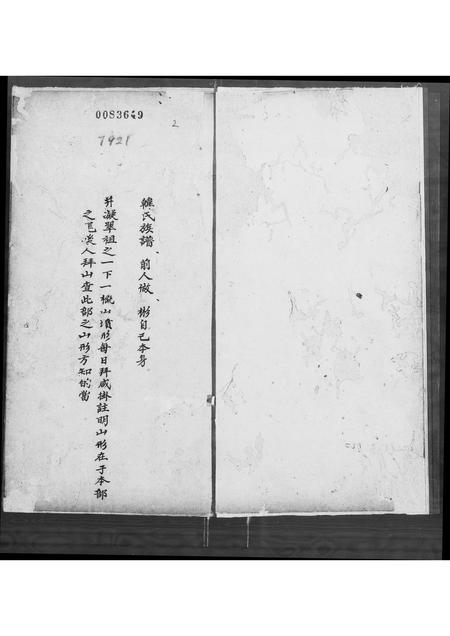 0083649
2
7921
氏族譜、前人做、彬自己本身
并凝翠祖之一下一概山墳形每日拜威掛註明山形在于本部
之後人拜山查此部之山形方知的當